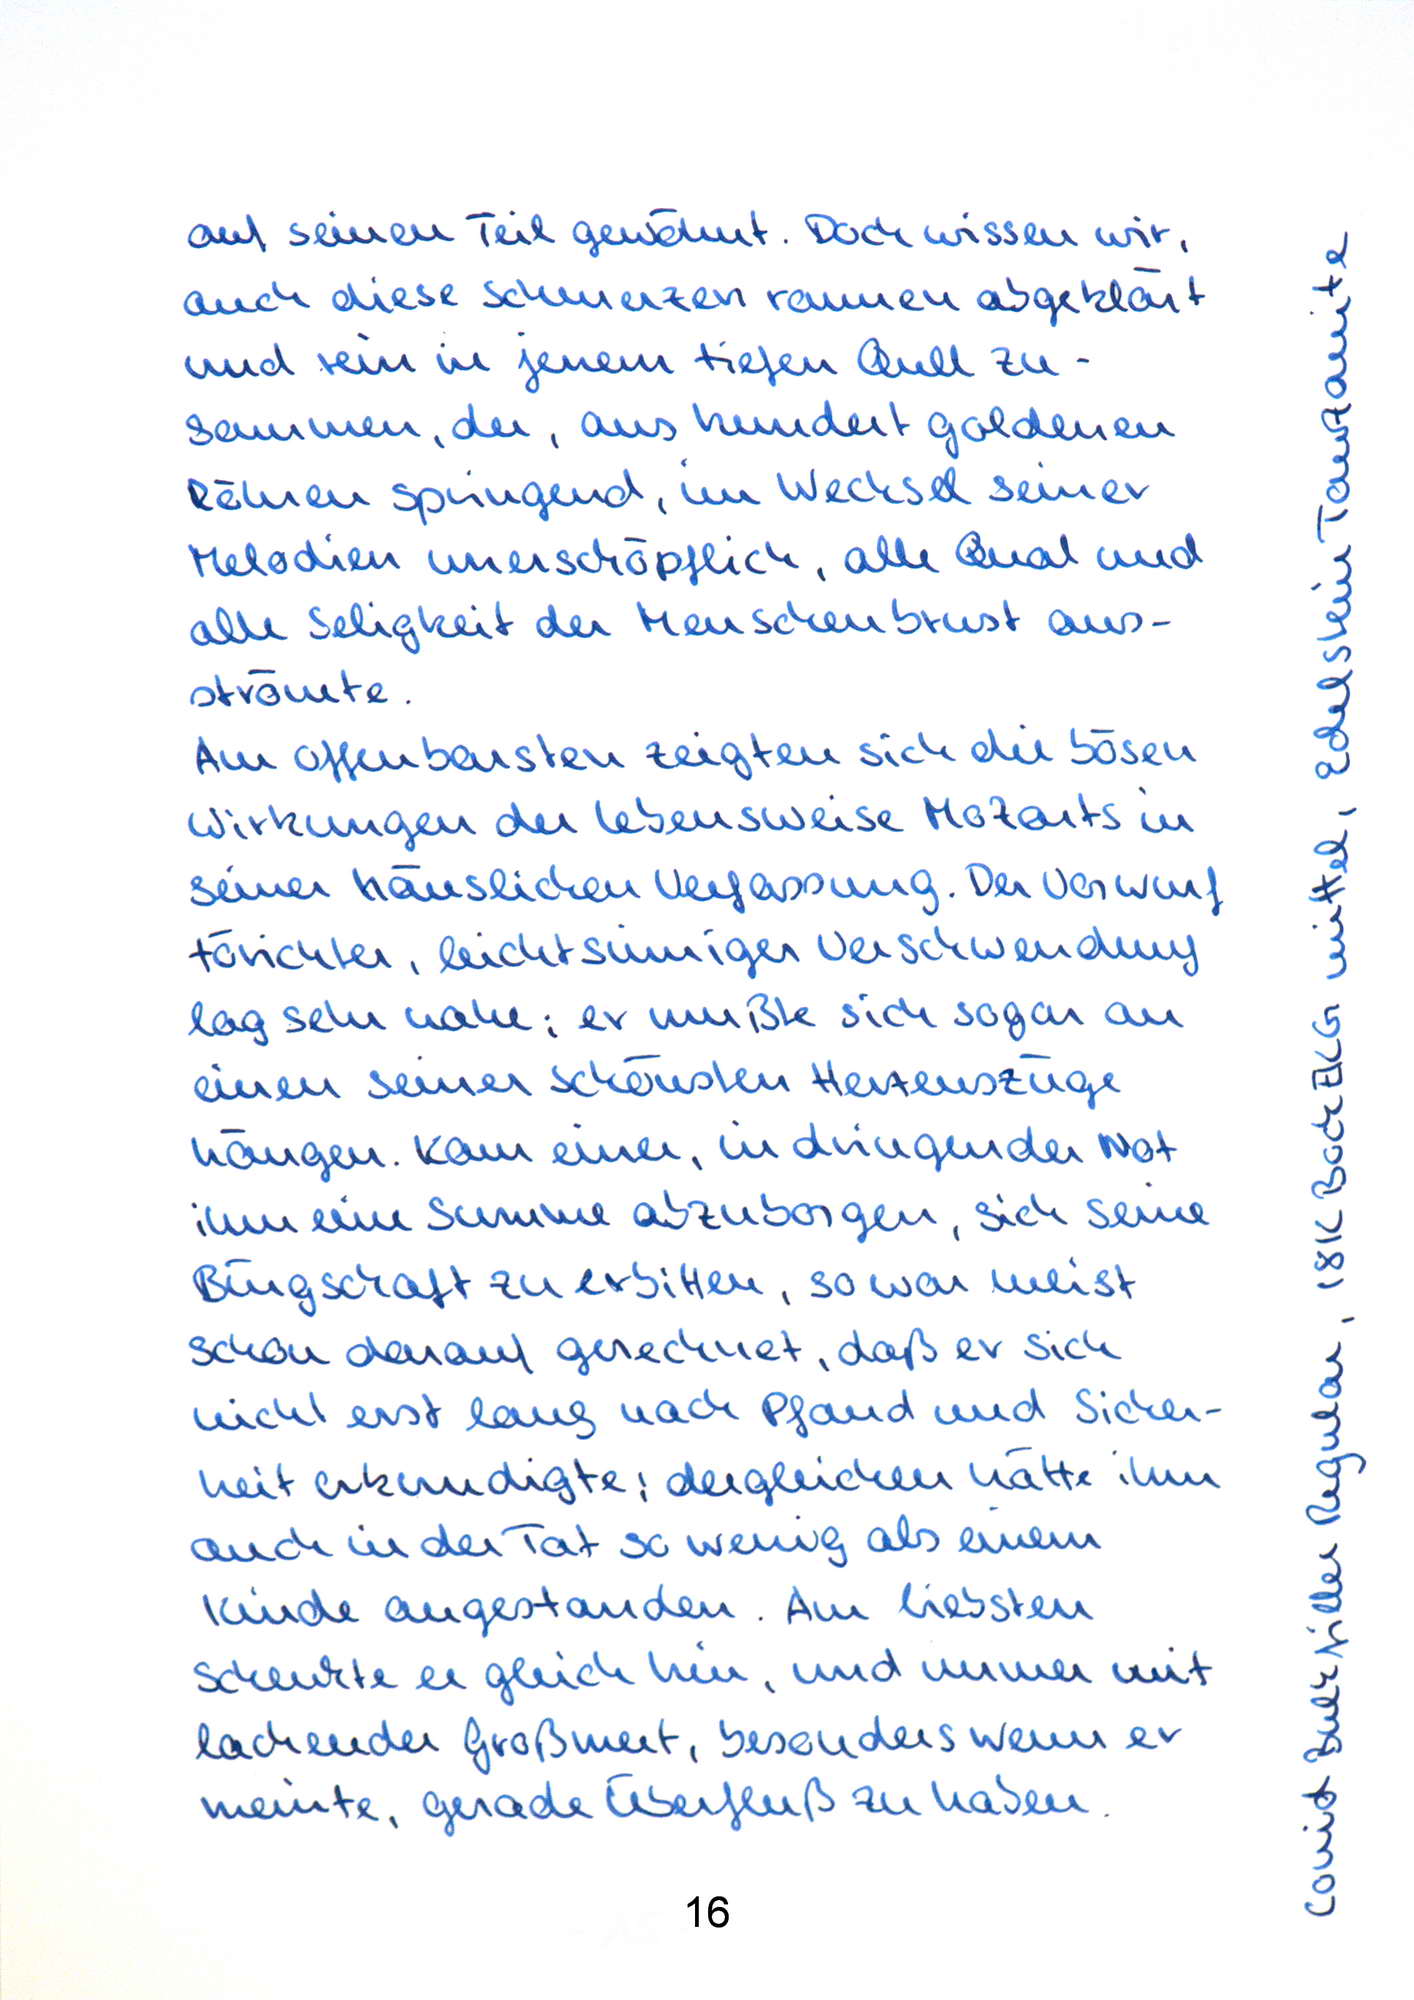 auf seinen Teil gewöhnt. Doch wissen wir,
auch diese Schmerzen rannen abgeklärt
und rein in jenem tiefen Quell zu-
sammen, der, aus hundert goldenen
Röhren springend, im Wechsel seiner
Melodien unerschöpflich, alle Qual und
alle Seligkeit der Menschenbrust aus-
strömte.
Am offenbarsten zeigten sich die bösen
Wirkungen der Lebensweise Mozarts in
seiner häuslichen Verfassung. Der Vorwurf
törichter, leichtsinniger Verschwendung
lag sehr nahe; er mußte sich sogar an
einen seiner schönsten Herzenszüge
hängen. Kam einer, in dringender Not
ihm eine Summe abzuborgen, sich seine
Bürgschaft zu erbitten, so war meist
schon darauf gerechnet, daß er sich
nicht erst lang nach Pfand und Sicher-
heit erkundigte; dergleichen hätte ihm
auch in der Tat so wenig als einem
Kinde angestanden. Am liebsten
schenkte er gleich hin, und immer mit
lachender Großmut, besonders wenn er
meinte, gerade Überfluß zu haben.
16
Conid Bulkfiller Regular, 18K Bock EKG mittel, Edelstein Tansanite